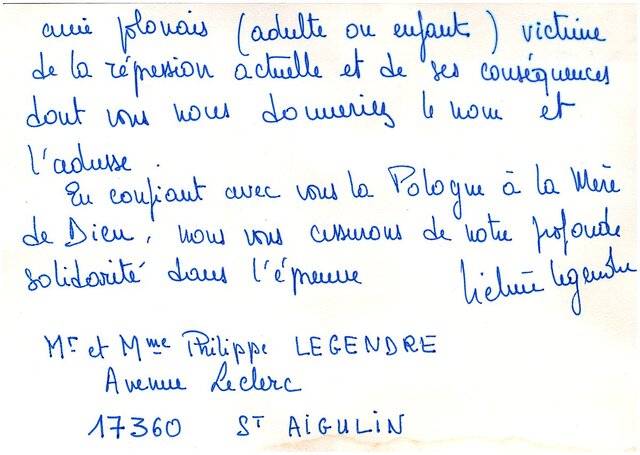 ami polonais (adulte ou enfant) victime
de la répression actuelle et de ses conséquences
dont vous nous donneriez le nom et
l'adresse.
En confiant avec vous la Pologne à la Mère
de Dieu, nous vous assurons de notre profonde
solidarité dans l'épreuve
Legendre
Mr et Mme Philippe LEGENDRE
Avenue Leclerc
17360 ST AIGULIN